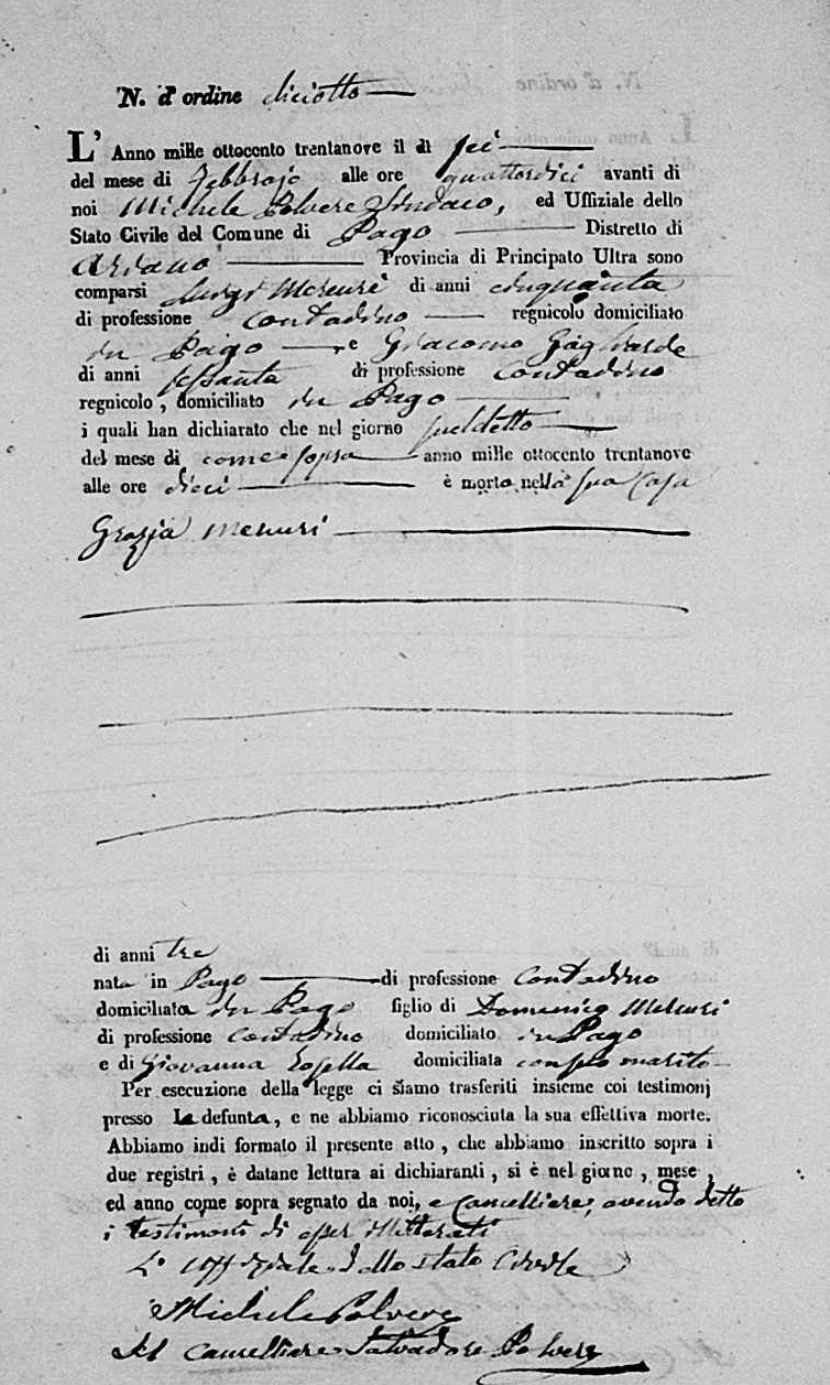 N. d' ordine diciotto
L' Anno mille ottocento trentanove il dì sei
del mese di Febbrajo alle ore quattordici avanti di
noi Michele Polvere Sindaco, ed Uffiziale dello
Stato Civile del Comune di Pago Distretto di
Ariano Provincia di Principato Ultra sono
comparsi Luigi Mercuri di anni cinquanta
di professione contadino regnicolo domiciliato
in Pago e Giacomo Gagliarde
di anni sessanta di professione contadino
regnicolo, domiciliato in Pago
i quali han dichiarato che nel giorno suddetto
del mese di come sopra anno mille ottocento trentanove
alle ore dieci è morta nella sua casa
Grazia Mercuri
di anni tre
nata in Pago di professione contadino
domiciliata in Pago figlio di Domenico Mercuri
di professione contadino domiciliato in Pago
e di Giovanna domiciliata con suo marito
Per esecuzione della legge ci siamo trasferiti insieme coi testimonj
presso la defunta, e ne abbiamo riconosciuta la sua effettiva morte.
Abbiamo indi formato il presente atto, che abbiamo inscritto sopra i
due registri, è datane lettura ai dichiaranti, si è nel giorno, mese,
ed anno come sopra segnato da noi, e Cancelliere, avendo detto
i testimonii di esser illitterati
L' Uffiziale dello stato Civile
Michele Polvere
Il Cancelliere Salvadore Polvere